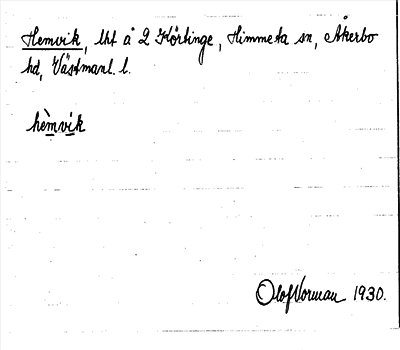 Hemvik, lht å 2 Körtinge, Himmeta sn, Åkerbo
hd, Västmanl. l.
hèmvik
Olof Vorman 1930.